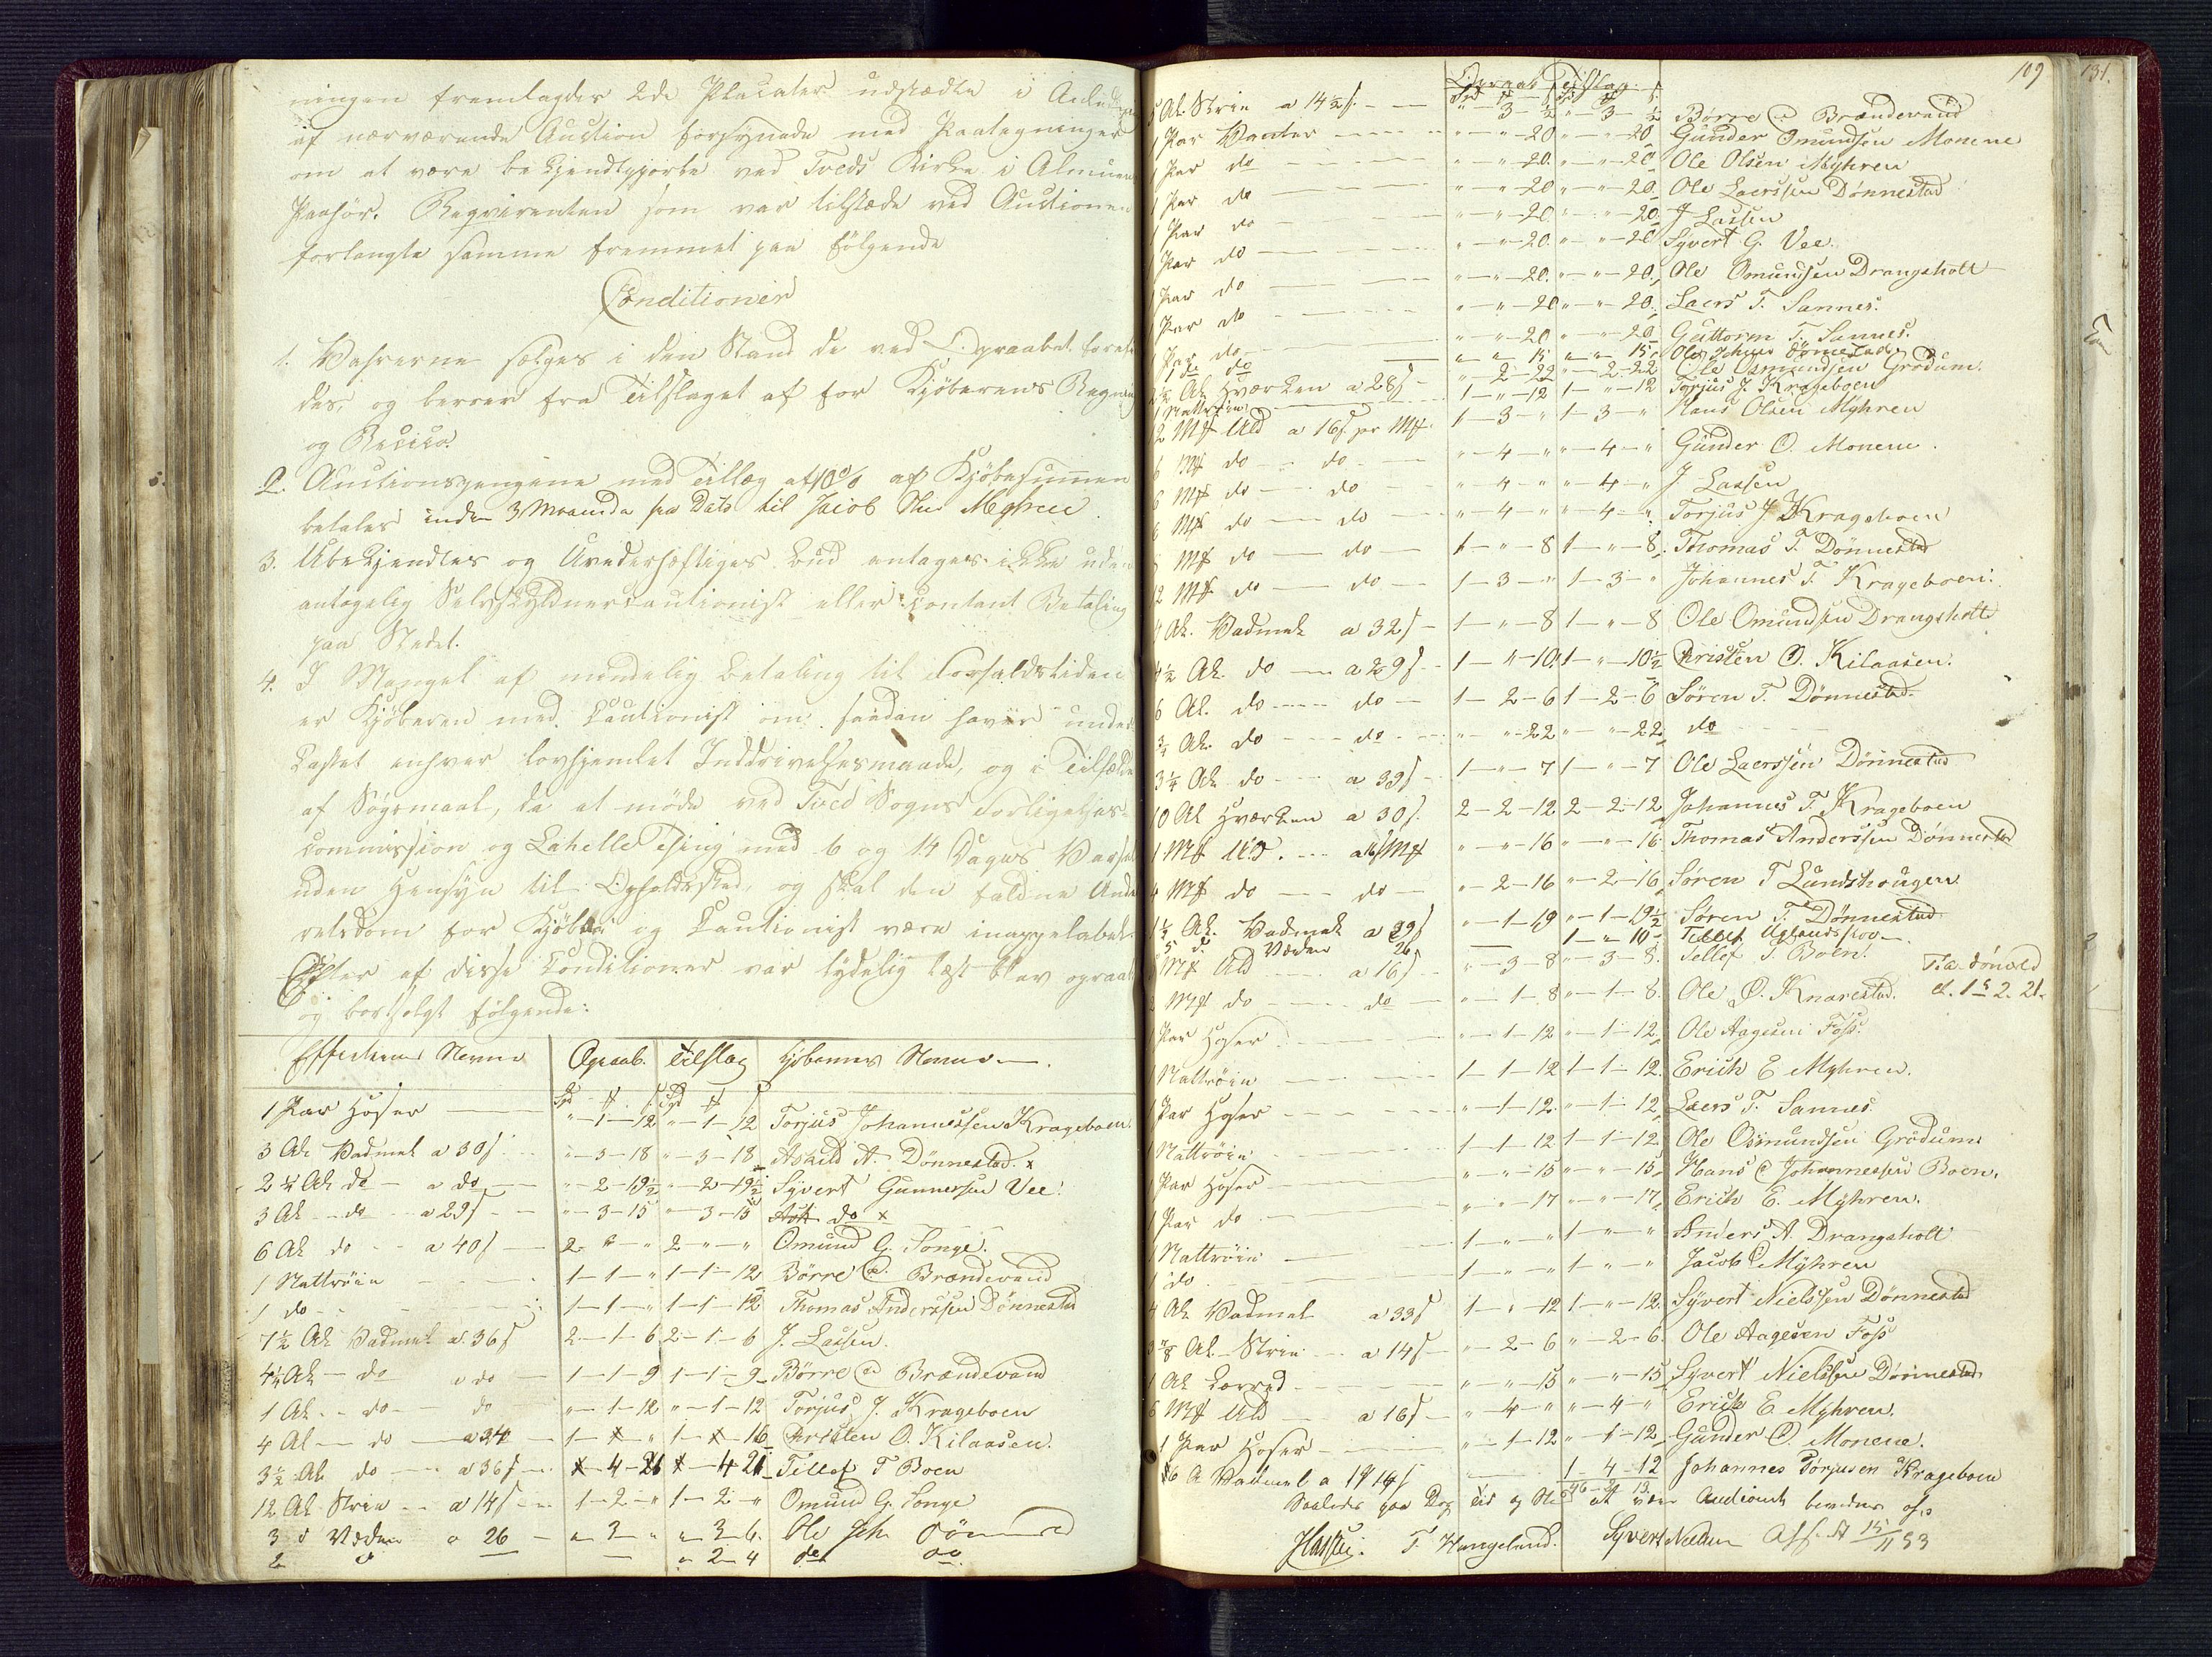 ningen fremlagdes 2de Placater udstædte i Anled
af nærværende Auction forsynede med Paategninger
om at være bekjendtgjorte ved Tveds Kirke i Almuens
Paahör. Reqvirenten som var tilstæde ved Auctionen
forlangte samme fremmet paa fölgende
Conditioner
1. Vahrerne sælges i den Stand de ved Opraabet forefin
des, og berores fra Tilslaget af for Kjöberens Regning
og Risico.
2. Auctionspengene med Tillæg af 10% af Kjöbesummen
betales inden 3 Maaneder fra Dato til Jacob Myhren
3. Ubekjendtes og Uvederhæftiges Bud antages ikke uden
antagelig Selvskyldnercautionist eller contant Betaling
paa Stedet.
4. I Mangel af mindelig Betaling til Forfaldstiden
er Kjöberen med Cautionist om saadan haves under
kastet enhver lovhjemlet Inddrivelsesmaade, og i Tilfælde
af Sögsmaal, da at möde ved Tved Sogns Forligelses-
commission og Lahelle Thing med 6 og 14 Dages Varsel
uden Hensyn til Opholdssted, og skal den faldne Unde
retsdom for Kjöber og Cautionist være inappelabel.
Efter at disse Conditioner var tydelig læst blev opraabt
og bortsolgt fölgende:
Effecternes Navne Opraab. Tilslag Kjöbernes Navne
Spd # ſ Spd # ſ
1 Par Hoser " - 1 - 12 " - 1 - 12 Torjus Johannessen Krageboen
3 Al. Vadmel a 30ſ " - 3 - 18 " - 3 - 18 Askild A. Dönnestad. x
2 1/4 Al do a do " - 2 - 19½ " - 2 - 19½ Syvert Gunnersen Vee.
3 Al do a 29ſ " - 3 - 15 " - 3 - 15 do x
6 Al do a 40ſ 2 - " - " 2 - " - " Omund G. Songe.
1 Nattröie 1 - 1 - " 1 - 1 - 12 Börre C. Brændevand
1 do 1 - 1 - " 1 - 1 - 12 Thomas Anderssen Dönnestad
7½ Al Vadmel a 36ſ 2 - 1 - 6 2 - 1 - 6 J. Lassen.
4¼ Al do a do 1 - 1 - 9 1 - 1 - 9 Börre C Brændevand
1 Al do do " - 1 - 12 " - 1 - 12 Torjus J. Krageboen
4 Al do a 34 1 - " 1 - 16 Christen O. Kilaasen.
3½ Al do a 36ſ 4 - 21 4 - 21 Tellef T Boen
12 Al Strie a 14ſ 1 - 2 - " 1 - 2 - " Omund G. Songe
3 d Væden a 26 " - 3 - " " - 3 - 6. Ole Joh. Dönnestad
2 d " 2 - 4 do do
109
131.
Opraab Tilslag.
5 Al. Strie a 14½ſ. " 3 - ½ " 3 - ½ Börre C Brændevand
1 Par Vanter " - " - 20 " - " - 20 Gunder Omundsen Monene
1 Par do " - " - 20 " - " - 20 Ole Olsen Myhren
1 Par do " - " - 20 " - " - 20 Ole Laerssen Dönnestad
1 Par do " - " - 20 " - " - 20 J Lassen
1 Par do " - " - 20 " - " - 20 Syvert G. Vee.
1 Par do " - " - 20 " - " - 20 Ole Omundsen Drangsholt
1 Par do " - " - 20 " - " - 20 Laers T. Sannes.
1 Par do " - " - 20 " - " - 20 Guttorm T. Sannes.
1 do do " " 15 " " 15 Ole Johns Dönnestad
2½ Al Hværken a 28ſ " - 2 - 22 " - 2 - 22 Ole Osmundsen Grödum.
1 Nattröie 1 - " - 12 1 - " - 12 Torjus J. Krageboen
12 M# Uld a 16ſ pr M# 1 - 3 - " 1 - 3 - " Hans Olsen Myhren
6 M# do do " - 4 - " " - 4 - " Gunder O. Monene.
6 M# do do " - 4 - " " - 4 - " J Lassen
6 M# do do " - 4 - " " - 4 - " Torjus J Krageboen
M# do do 1 - " - 8 1 - " - 8. Thomas T. Dönnestad
12 M# do do 1 - 3 - " 1 - 3 - " Johannes T. Krageboen.
4 Al. Vadmel a 32ſ 1 - " - 8 1 - " - 8 Ole Omundsen Drangsholt
4½ Al. do a 29ſ 1 - " - 10½ 1 - " - 10½ Christen O. Kilaasen.
6 Al. do do 1 - 2 - 6 1 - 2 - 6 Sören T. Dönnestad.
¾ Al. do do " - " - 22 " - " - 22 do
3¼ Al. do a 39ſ 1 - " - 7 1 - " - 7 Ole Laerssen Dönnestad
10 Al Hværken a 30ſ. 2 - 2 - 12 2 - 2 - 12 Johannes T. Krageboen
1 M# Uld. a 16ſ M# " - " - 16 " - " - 16 Thomas Anderssen Dönnestad
4 M# do do " - 2 - 16 " - 2 - 16 Sören T Lundshougen
1½ Al. Vadmel a 29ſ " - 1 - 19 " - 1 - 19½ Sören T. Dönnestad
5 d. Væden 26 1 - " - 10 - Tellef Uglandsskov
M# Uld a 16ſ " - 3 - 8 " - 3 - 8. Tellef T. Boen. T. a. Dönestd
2 M# do do " - 1 - 8 " - 1 - 8. Ole O. Knarestad. d. 1 s 2. 21.
1 Par Hoser " - 1 - 12 " - 1 - 12 Ole Aagesen Foss.
1 Nattröie 1 - 1 - 12 1 - 1 - 12. Erich E Myhren.
1 Par Hoser " - 1 - 12. " - 1 - 12 Laers T. Sannes.
1 Nattröie 1 - 1 - 12 1 - 1 - 12. Ole Osmundsen Grödum.
1 Par Hoser " - " - 15 " - " - 15 Hans C Johannessen Boen.
1 Par do " - " - 17 " - " - 17 Erich E. Myhren.
1 Nattröie 1 - " - " 1 - " - " Anders A. Drangsholt
1 do. 1 - " - " 1 - " - " Jacob C Myhren
4 Al. Vadmel a 33ſ 1 - " - 12 1 - " - 12. Syvert Nielssen Dönnestad
Al. Strie a 14ſ " - 2 - 6 " - 2 - 6. Ole Aagesen Foss
1 Al Lærred " - " - 15 " - " - 15 Syvert Nielssen Dönnestad
6 M# Uld a 16ſ " - 4 - " " - 4 - " Erich E Myhren.
1 Par Hoser " - 1 - 12 " - 1 - 12 Gunder O. Monene.
16 A Vadmel a 14ſ 1 - 4 - 12 Johannes Torjusen Krageboen
Saaledes paa Dag Tid og Sted at være Auctionert bevidnes af os
T. Hangeland. Syvert Nielsen Afs. d 15/11 53